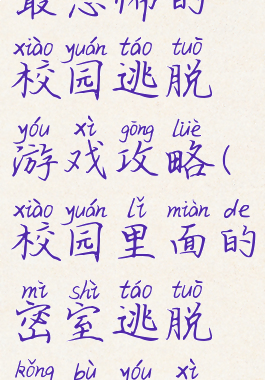 最恐怖的
xiào yuán táo tuō
校园逃脱
yóu xì gōng lüè
游戏攻略(
xiào yuán lǐ miàn de
校园里面的
mì shì táo tuō
密室逃脱
kǒng bù yóu xì